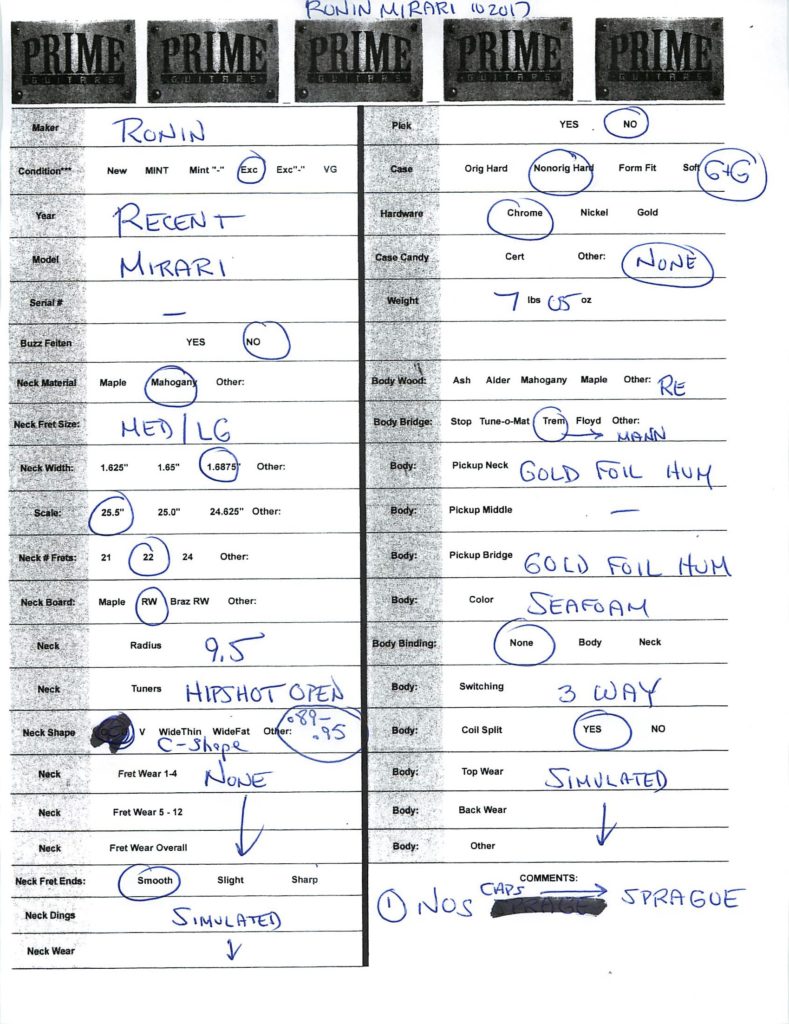 RONIN MIRARI 10 2017
PRIME GUITARS PRIME GUITARS PRIME GUITARS PRIME GUITARS PRIME GUITARS
Maker RONIN
Condition*** New MINT Mint "-" Exc Exc"-" VG
Year RECENT
Model MIRARI
Serial # —
Buzz Feiten YES NO
Neck Material Maple Mahogany Other:
Neck Fret Size: MED/LG
Neck Width: 1.625" 1.65" 1.6875" Other:
Scale: 25.5" 25.0" 24.625" Other:
Neck # Frets: 21 22 24 Other:
Neck Board: Maple RW Braz RW Other:
Neck Radius 9.5
Neck Tuners HIPSHOT OPEN
Neck Shape V WideThin WideFat Other: .89-.95
C-Shape
Neck Fret Wear 1-4 NONE
Neck Fret Wear 5 - 12
Neck Fret Wear Overall
Neck Fret Ends: Smooth Slight Sharp
Neck Dings SIMULATED
Neck Wear
Plek YES NO
Case Orig Hard Nonorig Hard Form Fit Soft G+G
Hardware Chrome Nickel Gold
Case Candy Cert Other: NONE
Weight 7 lbs 05 oz
Body Wood: Ash Alder Mahogany Maple Other: RE
Body Bridge: Stop Tune-o-Mat Trem Floyd Other:
→ MANN
Body: Pickup Neck GOLD FOIL HUM
Body: Pickup Middle —
Body: Pickup Bridge GOLD FOIL HUM
Body: Color SEAFOAM
Body Binding: None Body Neck
Body: Switching 3 WAY
Body: Coil Split YES NO
Body: Top Wear SIMULATED
Body: Back Wear
Body: Other
COMMENTS:
① NOS CAPS → SPRAGUE